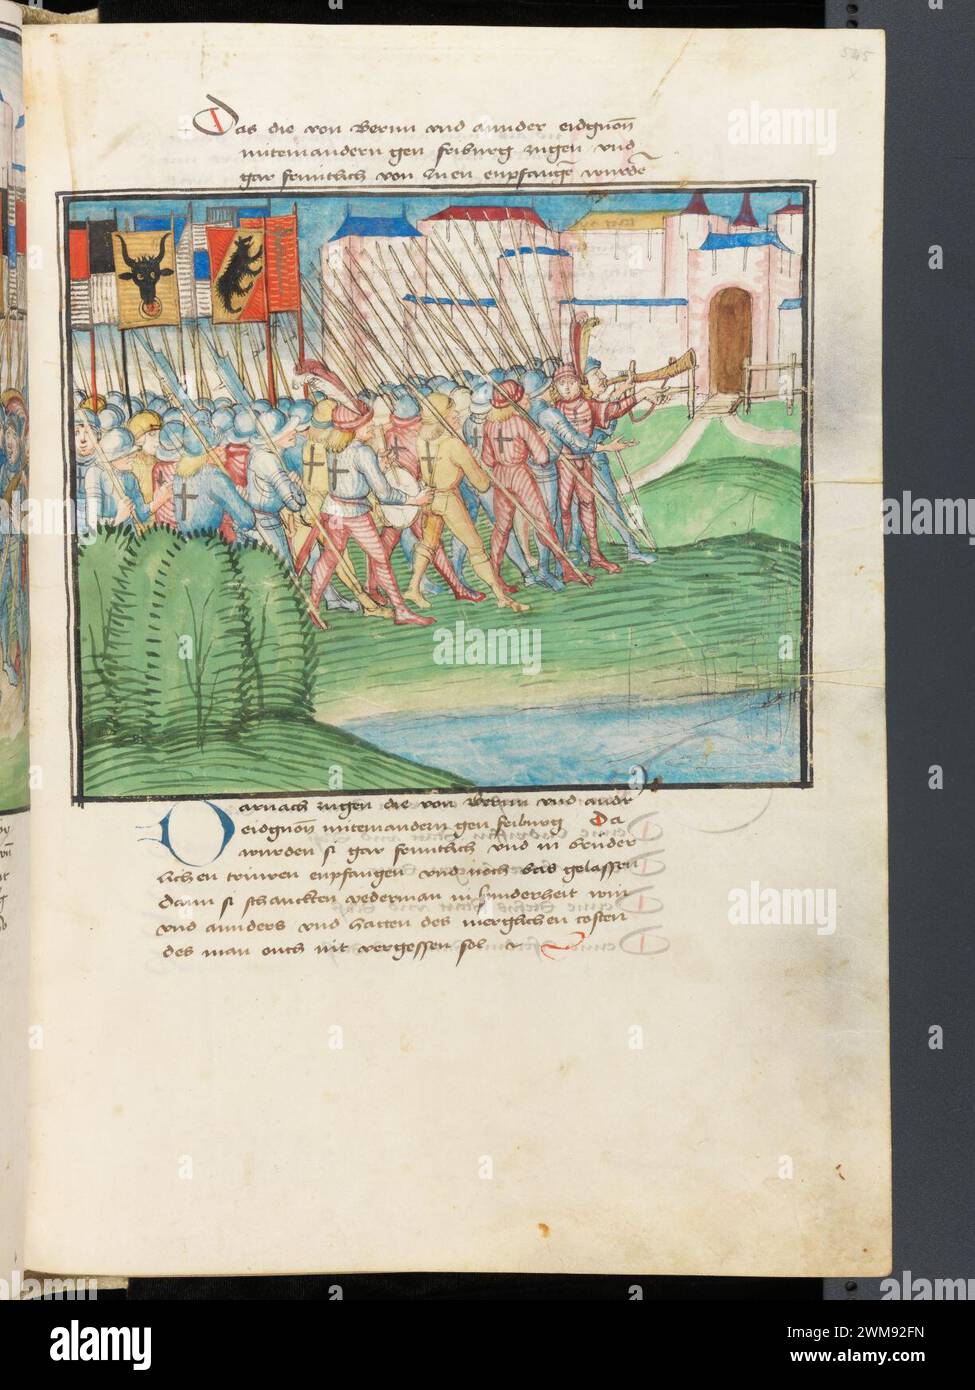 545
Das die von Bernn vnd annder eidgnoñ
miteinandern gen friburg zugen vnd
gar frúntlich von Inen enpfangẽ wurdẽ
Darnach zugen die von Bernn vnd andr
eidgnoñ miteinandern gen friburg Da
wurden si gar frúntlich vnd in brúder
lichen trúwen enpfangen vnd noch bas gelassen
dann si schanckten yederman in sunderheit win
vnd annders vnd hatten des merglichen costen
des man ouch nit vergessen sol
alamy
Image ID: 2WM92FN
www.alamy.com